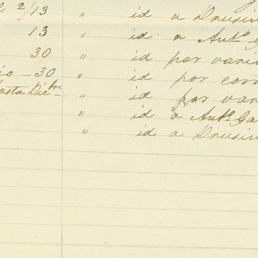 2/13 " id a Drusin
13 " id. a Auto. Ga
30 " id por vari
io - 30 " id por corr
asta Dicbre " id por vari
" id a Auto. Ga
" id a Drusin